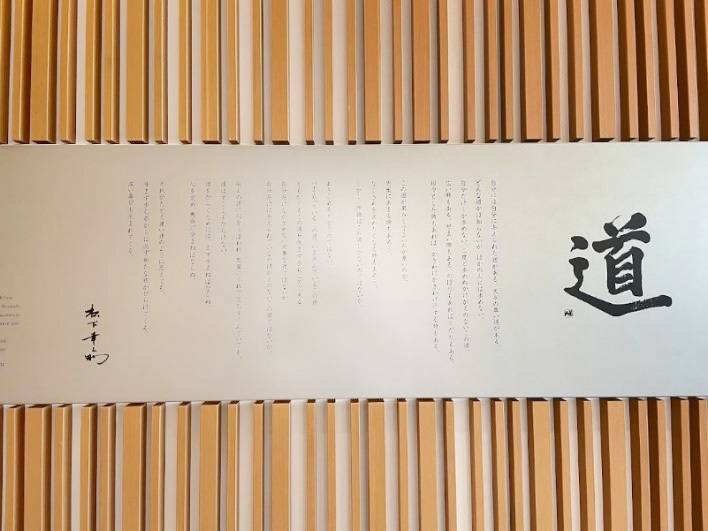 道
自分には自分に与えられた道がある。天与の尊い道がある。
どんな道かは知らないが、ほかの人には歩めない。
自分だけしか歩めない、二度と歩めぬかけがえのないこの道。
広い時もある。せまい時もある。のぼりもあればくだりもある。
坦々とした時もあれば、かきわけかきわけ汗する時もある。
この道が果たしてよいのか悪いのか、
思案にあまる時もあろう。
なぐさめを求めたくなる時もあろう。
しかし、所詮はこの道しかないのではないか。
あきらめろと言うのではない。
いま立っているこの道、いま歩んでいるこの道、
ともかくもこの道を休まず歩むことである。
自分だけしか歩めない大事な道ではないか。
自分だけに与えられているかけがえのないこの道ではないか。
他人の道に心をうばわれ、思案にくれて立ちすくんでいても、
道はすこしもひらけない。
道をひらくためには、まず歩まねばならぬ。
心を定め、懸命に歩まねばならぬ。
それがたとえ遠い道のように思えても、
休まず歩む姿からは必ず新たな道がひらけてくる。
深い喜びも生まれてくる。
松下幸之助